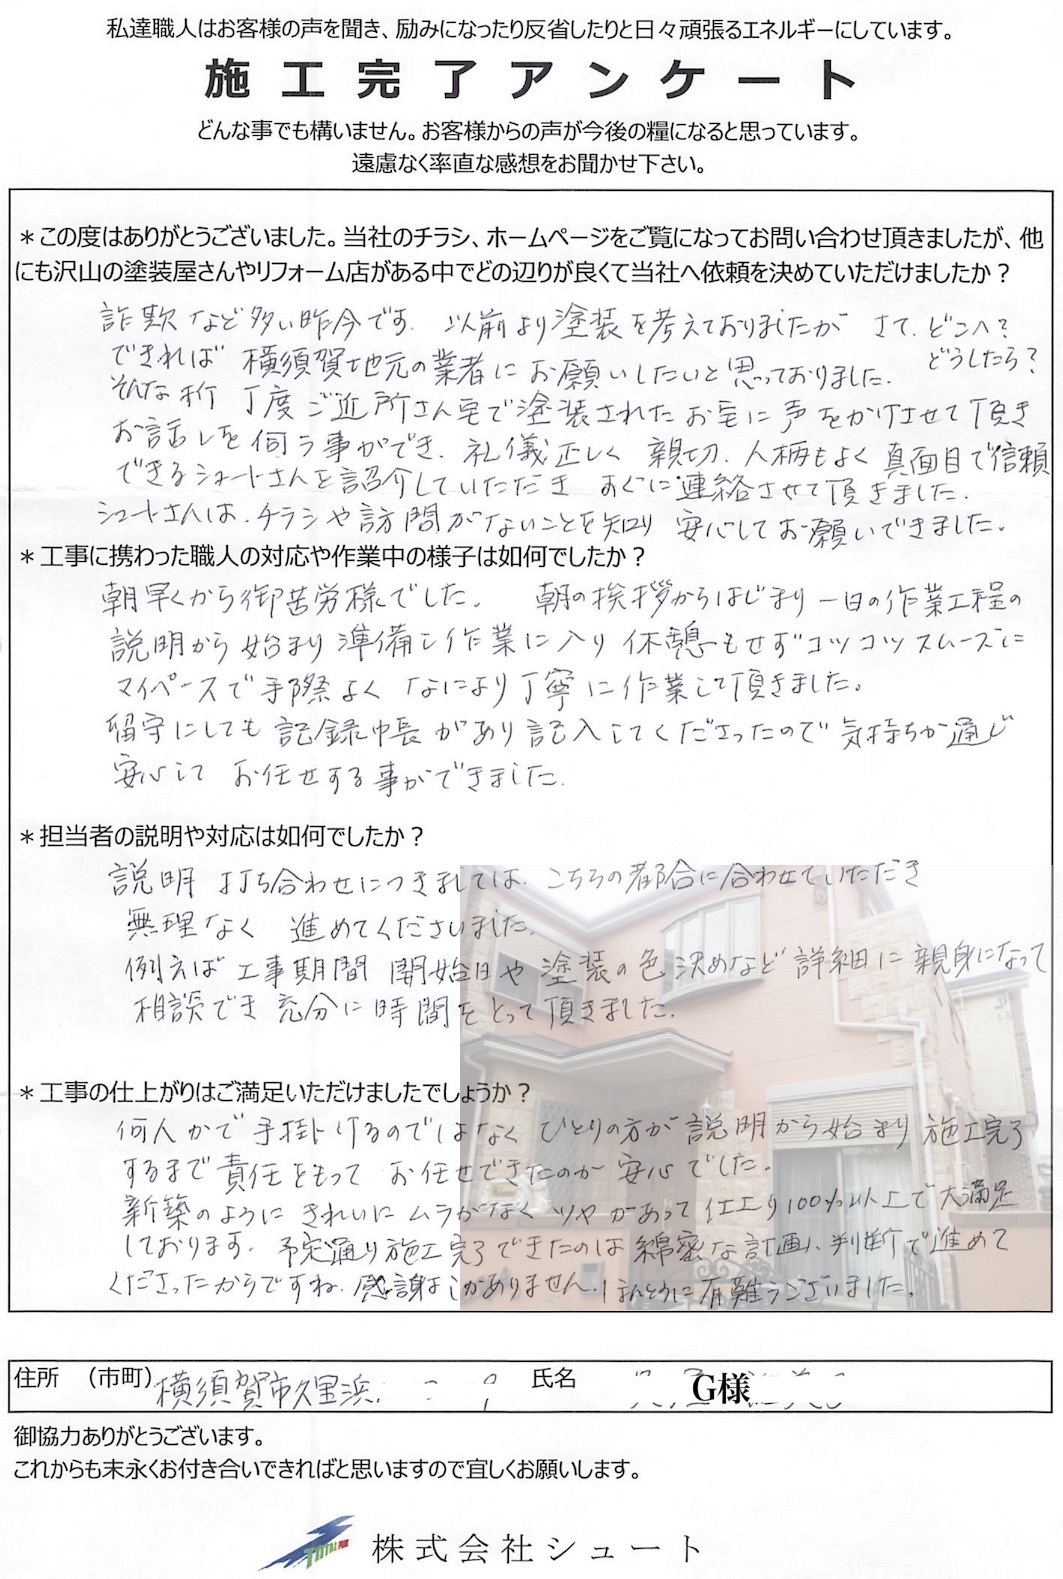 私達職人はお客様の声を聞き、励みになったり反省したりと日々頑張るエネルギーにしています。
施工完了アンケート
どんな事でも構いません。お客様からの声が今後の糧になると思っています。
遠慮なく率直な感想をお聞かせ下さい。
＊この度はありがとうございました。当社のチラシ、ホームページをご覧になってお問い合わせ頂きましたが、他
にも沢山の塗装屋さんやリフォーム店がある中でどの辺りが良くて当社へ依頼を決めていただけましたか？
詐欺など多い昨今です。以前より塗装を考えておりましたが さて、どこへ？
どうしたら？
できれば 横須賀地元の業者にお願いしたいと思っておりました。
そんな折 丁度ご近所さん宅で塗装されたお宅に声をかけさせて頂き
お話しを伺う事ができ、礼儀正しく 親切、人柄もよく真面目で信頼
できるシュートさんを紹介していただき すぐに連絡させて頂きました。
シュートさんは、チラシや訪問がないことを知り 安心してお願いできました。
＊工事に携わった職人の対応や作業中の様子は如何でしたか？
朝早くから御苦労様でした。 朝の挨拶からはじまり一日の作業工程の
説明から始まり準備し作業に入り休憩もせずコツコツスムーズに
マイペースで手際よく なにより丁寧に作業して頂きました。
留守にしても 記録帳があり記入してくださったので気持ちが通じ
安心して お任せする事ができました。
＊担当者の説明や対応は如何でしたか？
説明 打ち合わせにつきましては、こちらの都合に合わせていただき
無理なく 進めてくださいました。
例えば工事期間 開始日や塗装の色決めなど詳細に親身になって
相談でき 充分に時間をとって頂きました。
＊工事の仕上がりはご満足いただけましたでしょうか？
何人かで手掛けるのではなくひとりの方が説明から始まり施工完了
するまで責任をもって お任せできたのが安心でした。
新築のように きれいにムラがなくツヤがあって仕上り100%以上で大満足
しております。予定通り施工完了できたのは綿密な計画、判断で進めて
くださったからですね。感謝しかありません。ほんとうに有難うございました。
住所 （市町）横須賀市久里浜 氏名 G様
御協力ありがとうございます。
これからも末永くお付き合いできればと思いますので宜しくお願いします。
株式会社シュート